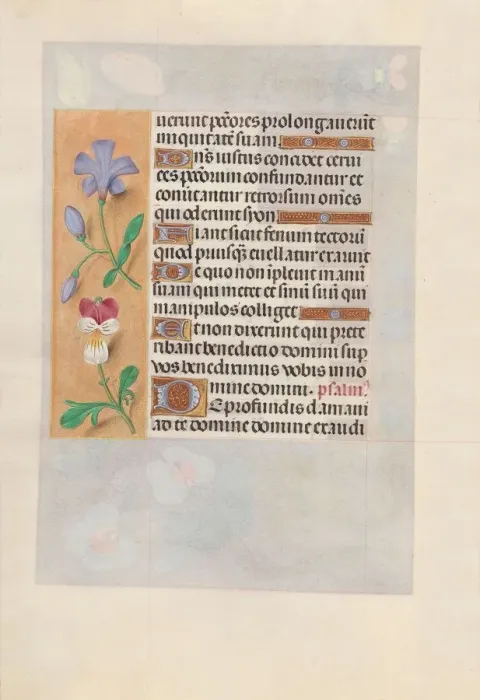 uerunt pctores prolongauerūt
iniquitatē suam
Dns̄ iustus concidet ceruī
ces pctorum confundantur et
conūtantur retrorsum omēs
qui oderunt syon
Fiant sicut fenum tectorū
quod priusq̄ euellatur exaruit
De quo non īpleuit manū
suam qui metet et sinū suū qui
manipulos colliget
Et non dixerunt qui prete
ribant benedictio domini sup
vos benediximus vobis in no
mine domini. psalm⁹
De profundis clamaui
ad te domine domine exaudi